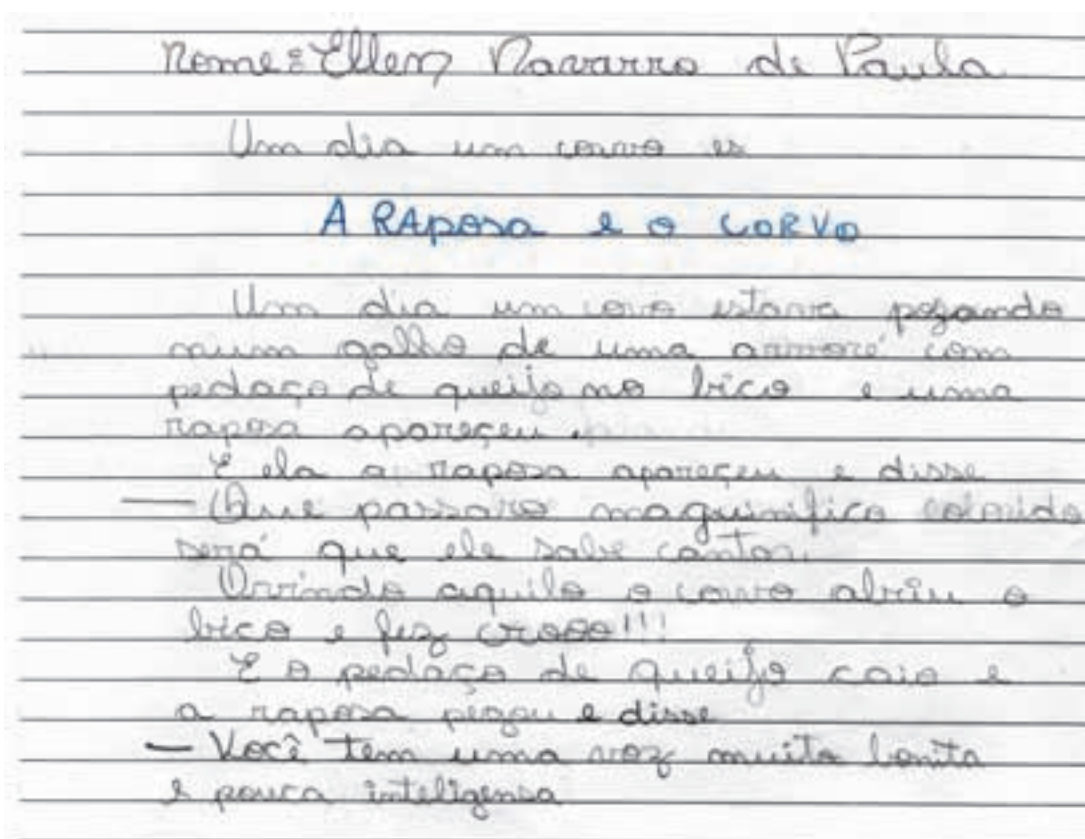 Nome: Ellen Navarro de Paula
Um dia um corvo es
A RAposa e o CORVo
Um dia um corvo estava pozando
num galho de uma arvore com
pedaço de queijo no bico e uma
raposa apareçeu.
E ela a raposa apareçeu e disse
— Que passaro maguinifico colorido
será que ele sabe cantar.
Ouvindo aquilo o corvo abriu o
bico e fez croooo!!!
E o pedaço de queijo caio e
a raposa pegou e disse
— Você tem uma voz muito bonita
e pouca inteligensa